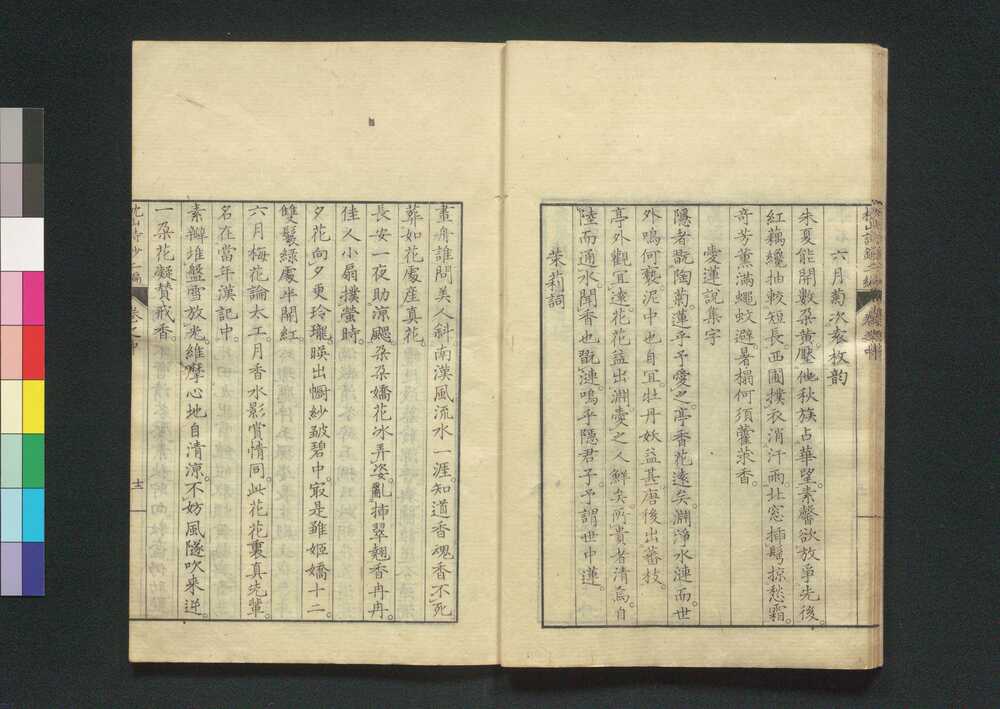 六月菊次家枚韵
朱夏能開數朶黄。壓他秋族占華望。素馨欲放爭先後。
紅藕纔抽較短長。西圃撲衣消汗雨。北窓揷鬓掠愁霜。
奇芳薰滿蠅蚊避。暑榻何須藿蒳香。
愛蓮說集字
隱者翫陶菊。蓮乎予愛之。亭香花遠矣。淵淨水漣而。世
外鳴何褻。泥中也自宜。牡丹妖益甚。唐後出蕃枝。
亭外觀宜遠。花花益出淵。愛之人鮮矣。所貴者清焉。自
陸而通水。聞香也翫漣。嗚乎隱君子。予謂世中蓮。
茉莉詞
畫舟誰問美人斜。南漢風流水一涯。知道香魂香不死。
葬如花處産真花。
長安一夜助涼颸。朶朶嬌花冰弄姿。亂揷翠翹香冉冉。
佳人小扇撲螢時。
夕花向夕更玲瓏。暎出幮紗皺碧中。㝡是雖姬嬌十二。
雙鬟綠處半開紅。
六月梅花論太工。月香水影賞情同。此花花裏真先輩。
名在當年漢記中。
素瓣堆盤雪放光。維摩心地自清涼。不妨風隧吹来逆。
一朶花凝賛戒香。
枕山詩鈔二編
卷之中
十一